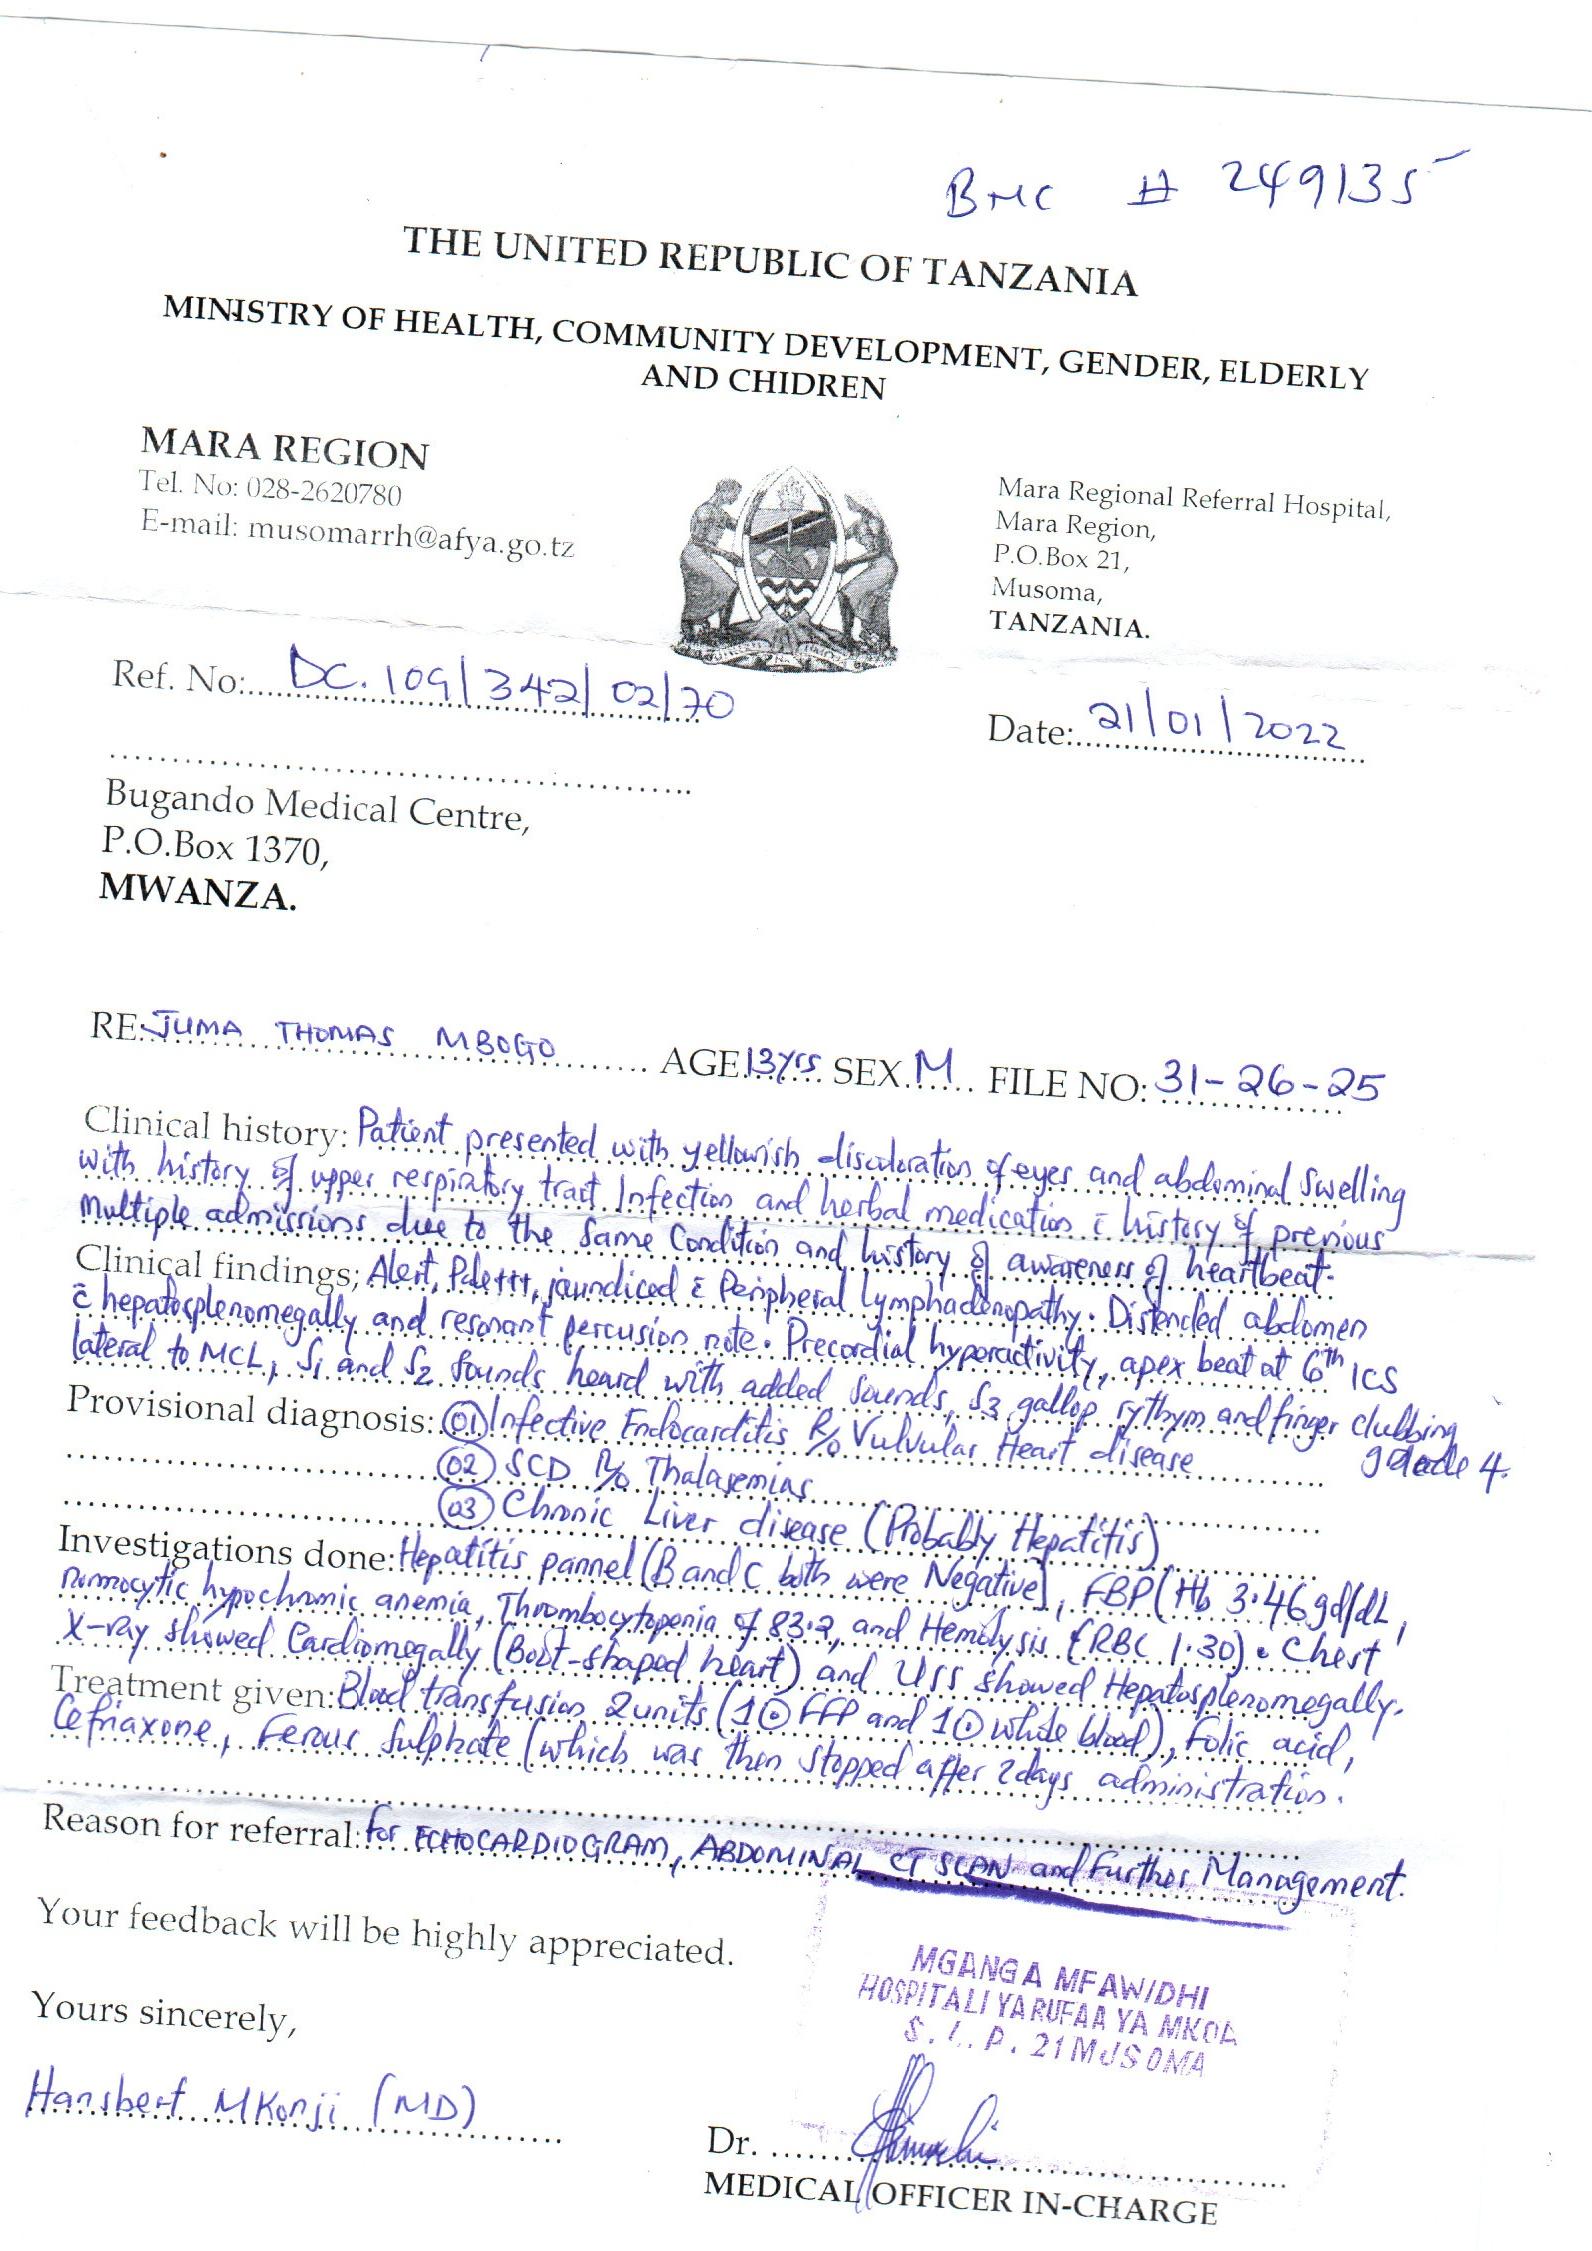 BMC # 249135
THE UNITED REPUBLIC OF TANZANIA
MINISTRY OF HEALTH, COMMUNITY DEVELOPMENT, GENDER, ELDERLY
AND CHIDREN
MARA REGION
Tel. No: 028-2620780
E-mail: musomarrh@afya.go.tz
Mara Regional Referral Hospital,
Mara Region,
P.O.Box 21,
Musoma,
TANZANIA.
Ref. No: DC.109/342/02/70
Date: 21/01/2022
Bugando Medical Centre,
P.O.Box 1370,
MWANZA.
RE: JUMA THOMAS MBOGO AGE 13yrs SEX M FILE NO: 31-26-25
Clinical history: Patient presented with yellowish discoloration of eyes and abdominal swelling
with history of upper respiratory tract Infection and herbal medication c̄ history of previous
Multiple admissions due to the same Condition and history of awareness of heartbeat.
Clinical findings; Alert, Pale+++, jaundiced c̄ Peripheral lymphadenopathy. Distended abdomen
c̄ hepatosplenomegally and resonant percusion note. Precordial hyperactivity, apex beat at 6th ICS
lateral to MCL, S1 and S2 sounds heard with added sounds, S3 gallop rythym and finger clubbing
grade 4.
Provisional diagnosis: 01 Infective Endocarditis R/o Vulvular Heart disease
02 SCD R/o Thalasemias
03 Chronic Liver disease (Probably Hepatitis)
Investigations done: Hepatitis pannel (B and C both were Negative), FBP (Hb 3.46 gd/dL,
normocytic hypochromic anemia, Thrombocytopenia of 83.2, and Hemolysis (RBC 1.30). Chest
X-ray showed Cardiomegally (Boot-shaped heart) and USS showed Hepatosplenomegally.
Treatment given: Blood transfusion 2units (1 FFP and 1 whole blood), Folic acid,
Cefriaxone, Ferous Sulphate (which was then stopped after 2days administration.
Reason for referral: for ECHOCARDIOGRAM, ABDOMINAL CT SCAN and Further Management.
Your feedback will be highly appreciated.
Yours sincerely,
Hansbert Mkonji (MD)
MGANGA MFAWIDHI
HOSPITALI YA RUFAA YA MKOA
S.L.P. 21 MUSOMA
Dr.
MEDICAL OFFICER IN-CHARGE